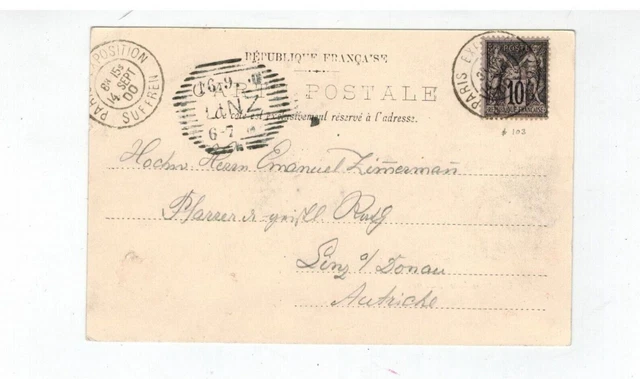 RÉPUBLIQUE FRANÇAISE
CARTE POSTALE
Ce côté est exclusivement réservé à l'adresse.
PARIS EXPOSITION
8M 15S
14 SEPT
00
SUFFREN
16.9
LINZ
6-7
PARIS EX
POSTE
10
RÉPUBLIQUE FRANÇAISE
# 103
Hochw. Herrn Emanuel Zimermann
Pfarrer & geistl. Rath
Linz a/ Donau
Autriche